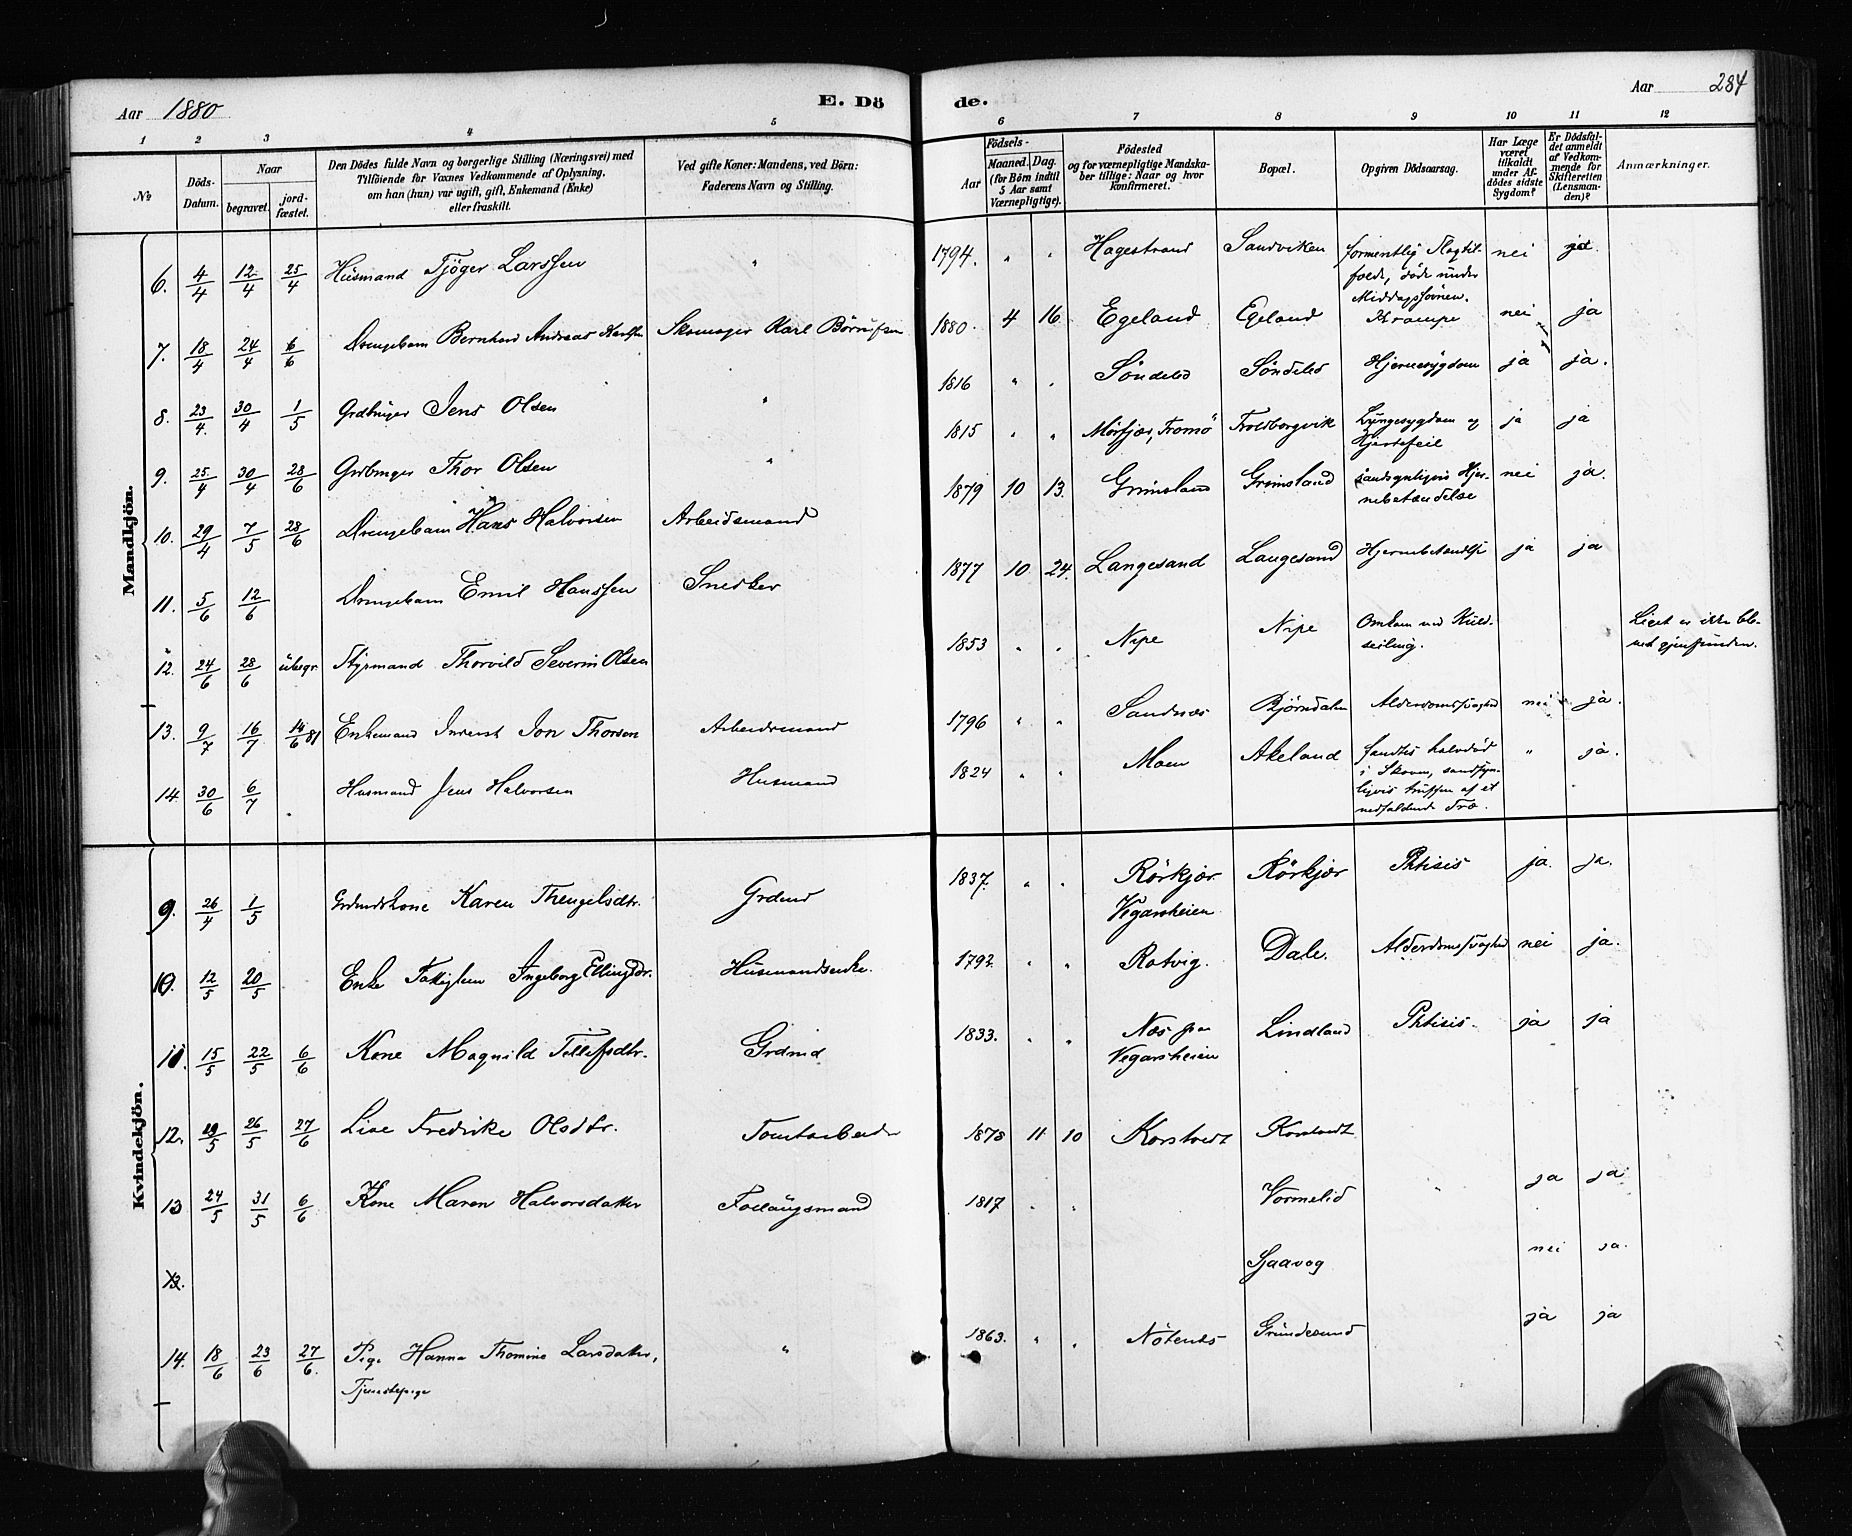 Aar 1880 E. Dö
de. Aar 284
1 2 3 4 5 6 7 8 9 10 11 12
No Döds-Datum. Naar begravet. jord-fæstet. Den Dödes fulde Navn og borgerlige Stilling (Næringsvei) med Tilföiende for Voxnes Vedkommende af Oplysning, om han (hun) var ugift, gift, Enkemand (Enke) eller fraskilt. Ved gifte Koner: Mandens, ved Börn: Faderens Navn og Stilling. Aar Födsels- Maaned. Dag. (for Börn indtil 5 Aar samt Værnepligtige). Födested og for værnepligtige Mandskaber tillige: Naar og hvor konfirmeret. Bopæl. Opgiven Dödsaarsag. Har Læge været tilkaldt under Afdödes sidste Sygdom? Er Dödsfaldet anmeldt af Vedkommende for Skifteretten (Lensmanden)? Anmærkninger.
Mandkjön.
6. 4/4 12/4 25/4 Husmand Tjöger Larssen " 1794. " " Hagestrand Sandviken formentlig Slagtilfælde, døde under Middagssövnen. nei ja.
7. 18/4 24/4 6/6 Drengebarn Bernhard Andreas Karlsen Skomager Karl 1880. 4 16 Egeland Egeland Krampe nei ja
8. 23/4 30/4 1/5 Grdbruger Jens Olsen " 1816 " " Söndeled Söndeled Hjernesygdom ja ja.
9. 25/4 30/4 28/6 Grdbruger Thor Olsen " 1815 " " Mörfjær, Tromö Troldborgvik Lungesygdom og Hjertefeil ja ja
10. 29/4 7/5 28/6 Drengebarn Hans Halvorsen Arbeidsmand 1879 10 13. Grimsland Grimsland sandsynligvis Hjernebetændelse nei ja.
11. 5/6 12/6 Drengebarn Emil Hanssen Snedker 1877 10 24. Langesand Langesand Hjernebetændelse ja ja
12. 24/6 28/6 ubegr. Styrmand Thorvild Severin Olsen 1853 " " Nipe Nipe Omkom ved Kuldseiling. Liget er ikke blevet gjenfunden.
13. 9/7 16/7 14/6 81 Enkemand Inderst Jon Thorsen Arbeidsmand 1796 " " Sandnæs Björndalen Alderdomssvaghed nei ja.
14 30/6 6/7 Husmand Jens Halvorsen Husmand 1824 " " Moen Akeland fandtes halvdöd i Skoven, sandsynligvis truffen af et nedfaldende Træ. " ja.
Kvindekjön.
9. 26/4 1/5 Grdmdskone Karen Thengelsdtr. Grdmd 1837. " " Rörkjær Vegarsheien Rörkjær Phtisis ja. ja.
10. 12/5 20/5 Enke Ingeborg Ellingsdtr. Husmandsenke. 1792. " " Rotvig. Dale. Alderdomssvaghed nei ja.
11. 15/5 22/5 6/6 Kone Magnild Tellefsdtr. Grdmd 1833. " " Næs paa Vegarsheien Lindland Phtisis. ja ja
12. 29/5 26/5 27/6 Lise Fredrike Olsdtr. Tomtarbeider 1878 11 10 Korstvedt Korstvedt
13 24/5 31/5 6/6 Kone Maren Halvorsdatter Follaugsmand 1817 " " Vormelid " ja ja
13. Sjaavog nei ja.
14. 18/6 23/6 27/6. Pige Hanna Thomine Larsdatter, Tjenestepige " 1863. " " Nötenes Grundesund ja ja